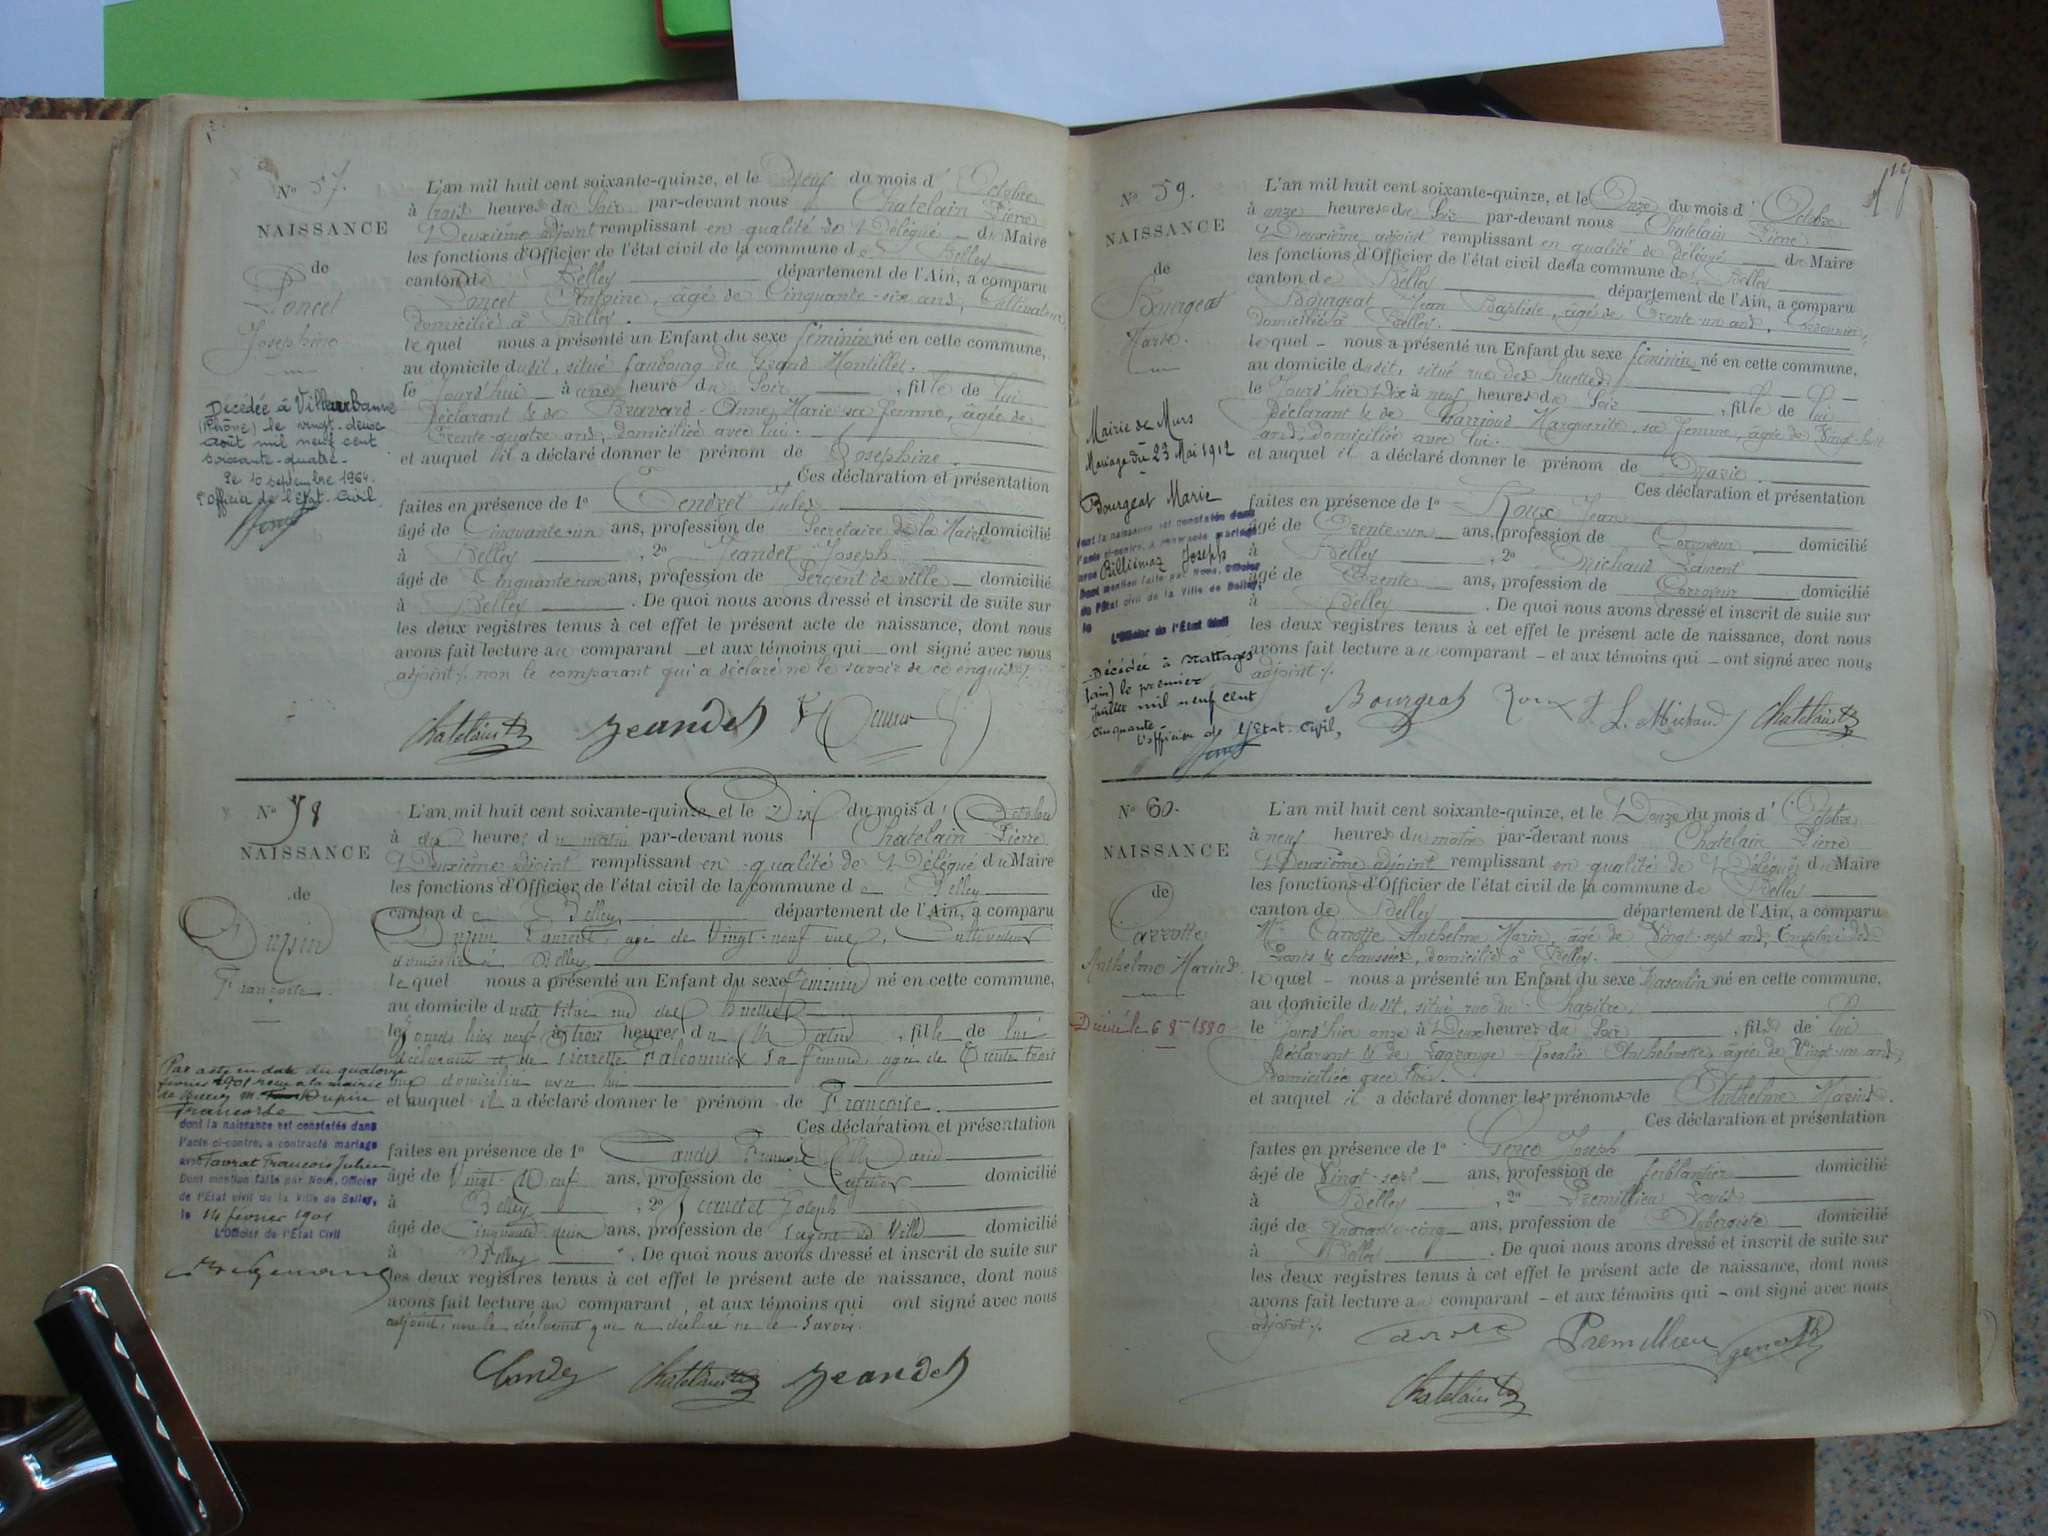 N° 57.
NAISSANCE
de
Poncet
Joséphine
Décédée à Villeurbanne
(Rhône) le vingt-deux
août mil neuf cent
soixante-quatre-
Le 10 septembre 1964.
L'officier de l'Etat-Civil.
L'an mil huit cent soixante-quinze, et le Neuf du mois d' Octobre
à trois heures du Soir par-devant nous Chatelain Pierre
Deuxième adjoint remplissant en qualité de Délégué du Maire
les fonctions d'Officier de l'état civil de la commune de Belley
canton de Belley département de l'Ain, a comparu
Poncet Antoine, âgé de Cinquante-six ans, Cultivateur,
domicilié à Belley.
lequel nous a présenté un Enfant du sexe féminin né en cette commune,
au domicile dudit, situé faubourg du Grand Montillet.
le Jourd'hui à une heure du Soir, fille de lui
Déclarant & de Bravard Anne Marie sa femme, âgée de
Trente-quatre ans, domiciliée avec lui.
et auquel il a déclaré donner le prénom de Joséphine.
Ces déclaration et présentation
faites en présence de 1° Tendret Jules
âgé de Cinquante-un ans, profession de Secrétaire de la Mairie domicilié
à Belley, 2° Jeandet Joseph
âgé de Cinquante-un ans, profession de Sergent de ville domicilié
à Belley. De quoi nous avons dressé et inscrit de suite sur
les deux registres tenus à cet effet le présent acte de naissance, dont nous
avons fait lecture au comparant et aux témoins qui ont signé avec nous
adjoint /. non le comparant qui a déclaré ne le savoir de ce enquis /.
Chatelain Jeandet
N° 58
NAISSANCE
de
Dupin
Françoise.
Par acte en date du quatorze
février 1901 reçu à la mairie
de M. Dupin
Françoise
dont la naissance est constatée dans
l'acte ci-contre, a contracté mariage
avec Tavrat François Julien
Dont mention faite par Nous, Officier
de l'État civil de la Ville de Belley,
le 14 février 1901
L'Officier de l'État Civil
L'an mil huit cent soixante-quinze, et le Dix du mois d' Octobre
à dix heures du matin par-devant nous Chatelain Pierre
Deuxième adjoint remplissant en qualité de Délégué du Maire
les fonctions d'Officier de l'état civil de la commune de Belley
canton de Belley département de l'Ain, a comparu
Dupin Laurent, âgé de Vingt-neuf ans, Cultivateur
domicilié à Belley
lequel nous a présenté un Enfant du sexe féminin né en cette commune,
au domicile dudit situé rue des Huettes
le Jourd'hier neuf à trois heures du Matin, fille de lui
déclarant et de Pierrette Falconnier Sa femme, agée de Trente trois
ans domiciliée avec lui
et auquel il a déclaré donner le prénom de Françoise.
Ces déclaration et présentation
faites en présence de 1°
âgé de Vingt-Neuf ans, profession de domicilié
à Belley, 2° Jeandet Joseph
âgé de Cinquante deux ans, profession de Sergent de Ville domicilié
à Belley. De quoi nous avons dressé et inscrit de suite sur
les deux registres tenus à cet effet le présent acte de naissance, dont nous
avons fait lecture au comparant, et aux témoins qui ont signé avec nous
adjoint, non le déclarant qui a déclaré ne le savoir.
Chatelain Jeandet
N° 59.
NAISSANCE
de
Bourgeat
Marie.
Mairie de Murs
Mariage du 23 Mai 1912
Bourgeat Marie
dont la naissance est constatée dans
l'acte ci-contre, a contracté mariage
avec Billiemaz Joseph
Dont mention faite par Nous, Officier
de l'État civil de la Ville de Belley,
le
L'Officier de l'État Civil
Décédée à Nattages
(ain) le premier
juillet mil neuf cent
cinquante-
L'officier de l'Etat-Civil,
L'an mil huit cent soixante-quinze, et le Onze du mois d' Octobre
à onze heures du Soir par-devant nous Chatelain Pierre
Deuxième adjoint remplissant en qualité de Délégué du Maire
les fonctions d'Officier de l'état civil de la commune de Belley
canton de Belley département de l'Ain, a comparu
Bourgeat Jean Baptiste, âgé de Trente-un ans,
domicilié à Belley.
lequel nous a présenté un Enfant du sexe féminin né en cette commune,
au domicile dudit, situé rue des Huettes
le Jourd'hier Dix à neuf heures du Soir, fille de lui
Déclarant & de Marguerite, sa femme, âgée de Vingt-huit
ans, domiciliée avec lui.
et auquel il a déclaré donner le prénom de Marie.
Ces déclaration et présentation
faites en présence de 1° Roux Jean
âgé de Trente-un ans, profession de Corroyeur domicilié
à Belley, 2° Michaud Laurent
âgé de Trente ans, profession de Corroyeur domicilié
à Belley. De quoi nous avons dressé et inscrit de suite sur
les deux registres tenus à cet effet le présent acte de naissance, dont nous
avons fait lecture au comparant et aux témoins qui ont signé avec nous
adjoint /.
Bourgeat Roux J. L. Michaud Chatelain
N° 60.
NAISSANCE
de
Carrotte
Anthelme Marius.
Décédé le 6 8bre 1880
L'an mil huit cent soixante-quinze, et le Douze du mois d' Octobre
à neuf heures du matin par-devant nous Chatelain Pierre
Deuxième adjoint remplissant en qualité de Délégué du Maire
les fonctions d'Officier de l'état civil de la commune de Belley
canton de Belley département de l'Ain, a comparu
Mr Carrotte Anthelme Marin, âgé de Vingt-sept ans, Employé des
Ponts & chaussées, domicilié à Belley.
lequel nous a présenté un Enfant du sexe Masculin né en cette commune,
au domicile dudit, situé rue du Chapitre,
le Jourd'hier onze à Deux heures du Soir, fils de lui
Déclarant & de Lagrange Rosalie Anthelmette, âgée de Vingt-un ans,
Domiciliée avec lui.
et auquel il a déclaré donner les prénoms de Anthelme Marius.
Ces déclaration et présentation
faites en présence de 1° Genod Joseph
âgé de Vingt-sept ans, profession de ferblantier domicilié
à Belley, 2° Premillieu Louis
âgé de Quarante-cinq ans, profession de Aubergiste domicilié
à Belley. De quoi nous avons dressé et inscrit de suite sur
les deux registres tenus à cet effet le présent acte de naissance, dont nous
avons fait lecture au comparant et aux témoins qui ont signé avec nous
adjoint /.
Premillieu
Chatelain